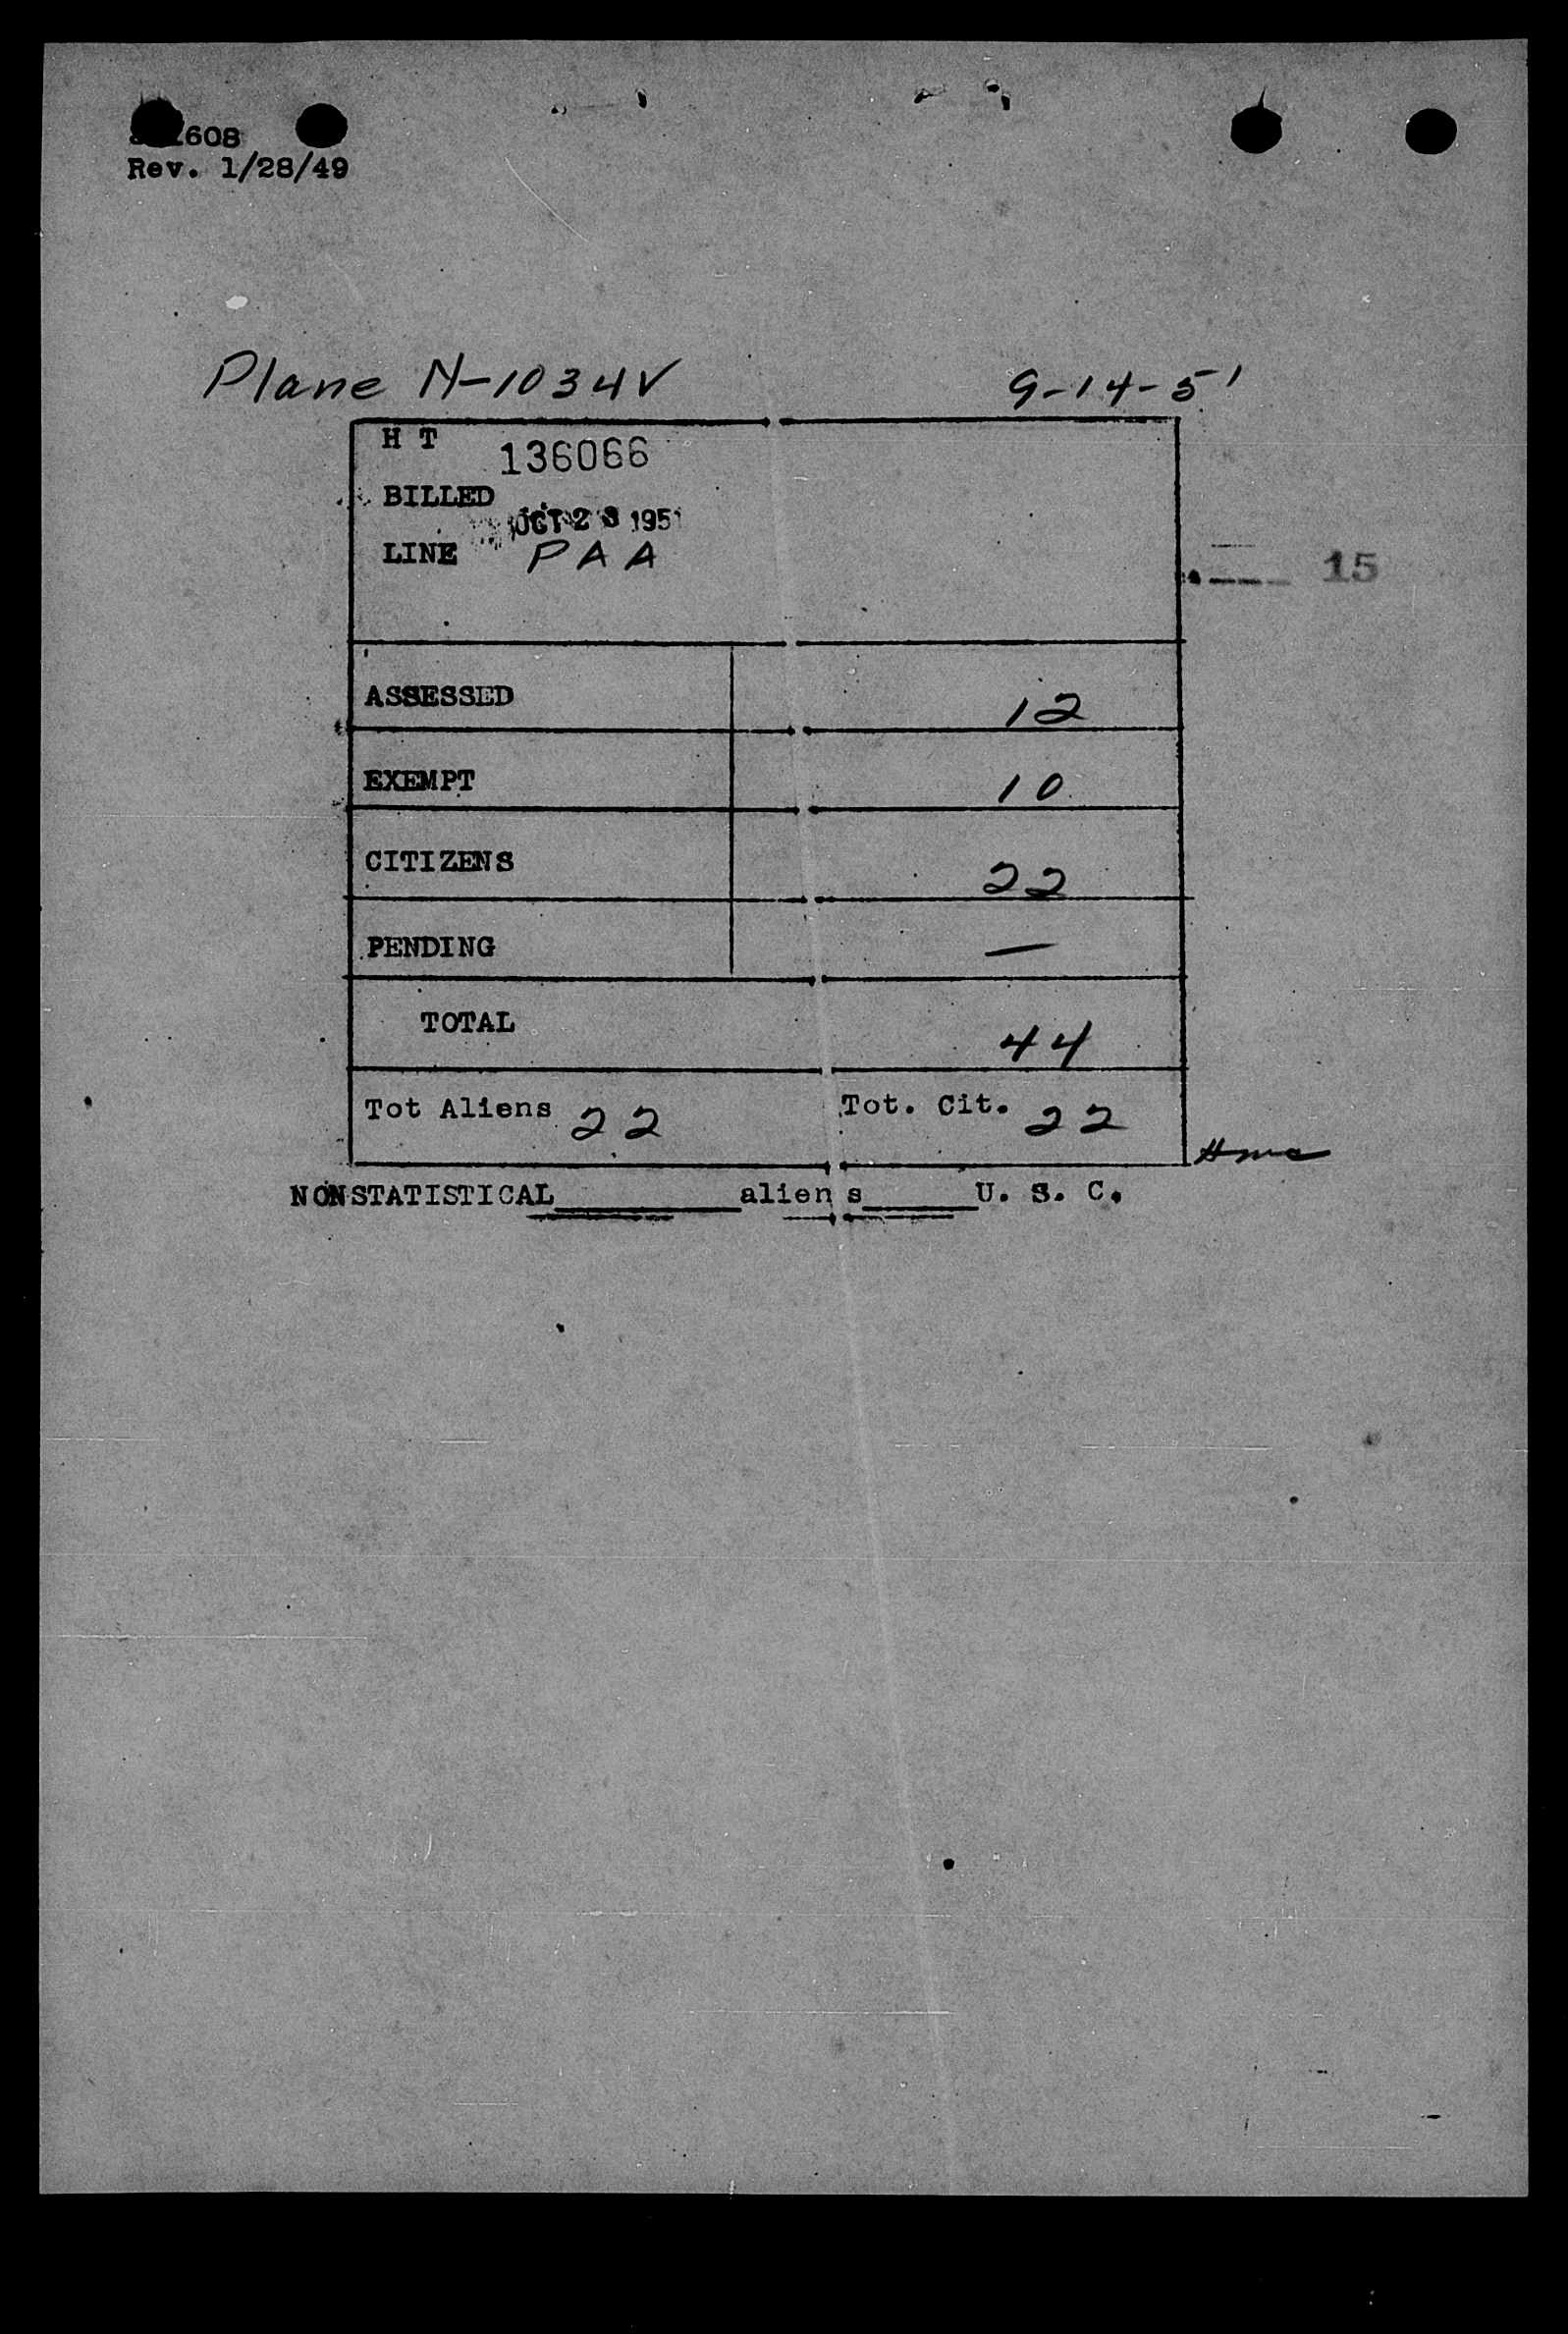 608
Rev. 1/28/49
Plane N-1034V 9-14-51
H T 136066
BILLED
OCT 23 1951
LINE PAA
15
ASSESSED 12
EXEMPT 10
CITIZENS 22
PENDING —
TOTAL 44
Tot Aliens 22 Tot. Cit. 22
NONSTATISTICAL__________aliens______U. S. C.